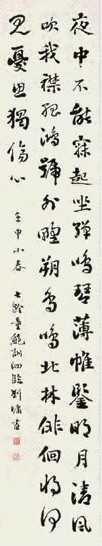 夜中不能寐起坐彈鳴琴薄帷鑒明月清風
吹我襟孤鴻號外野朔鳥鳴北林徘徊將何
見憂思獨傷心
壬申小春
七齡童鮑泗臨劉墉書